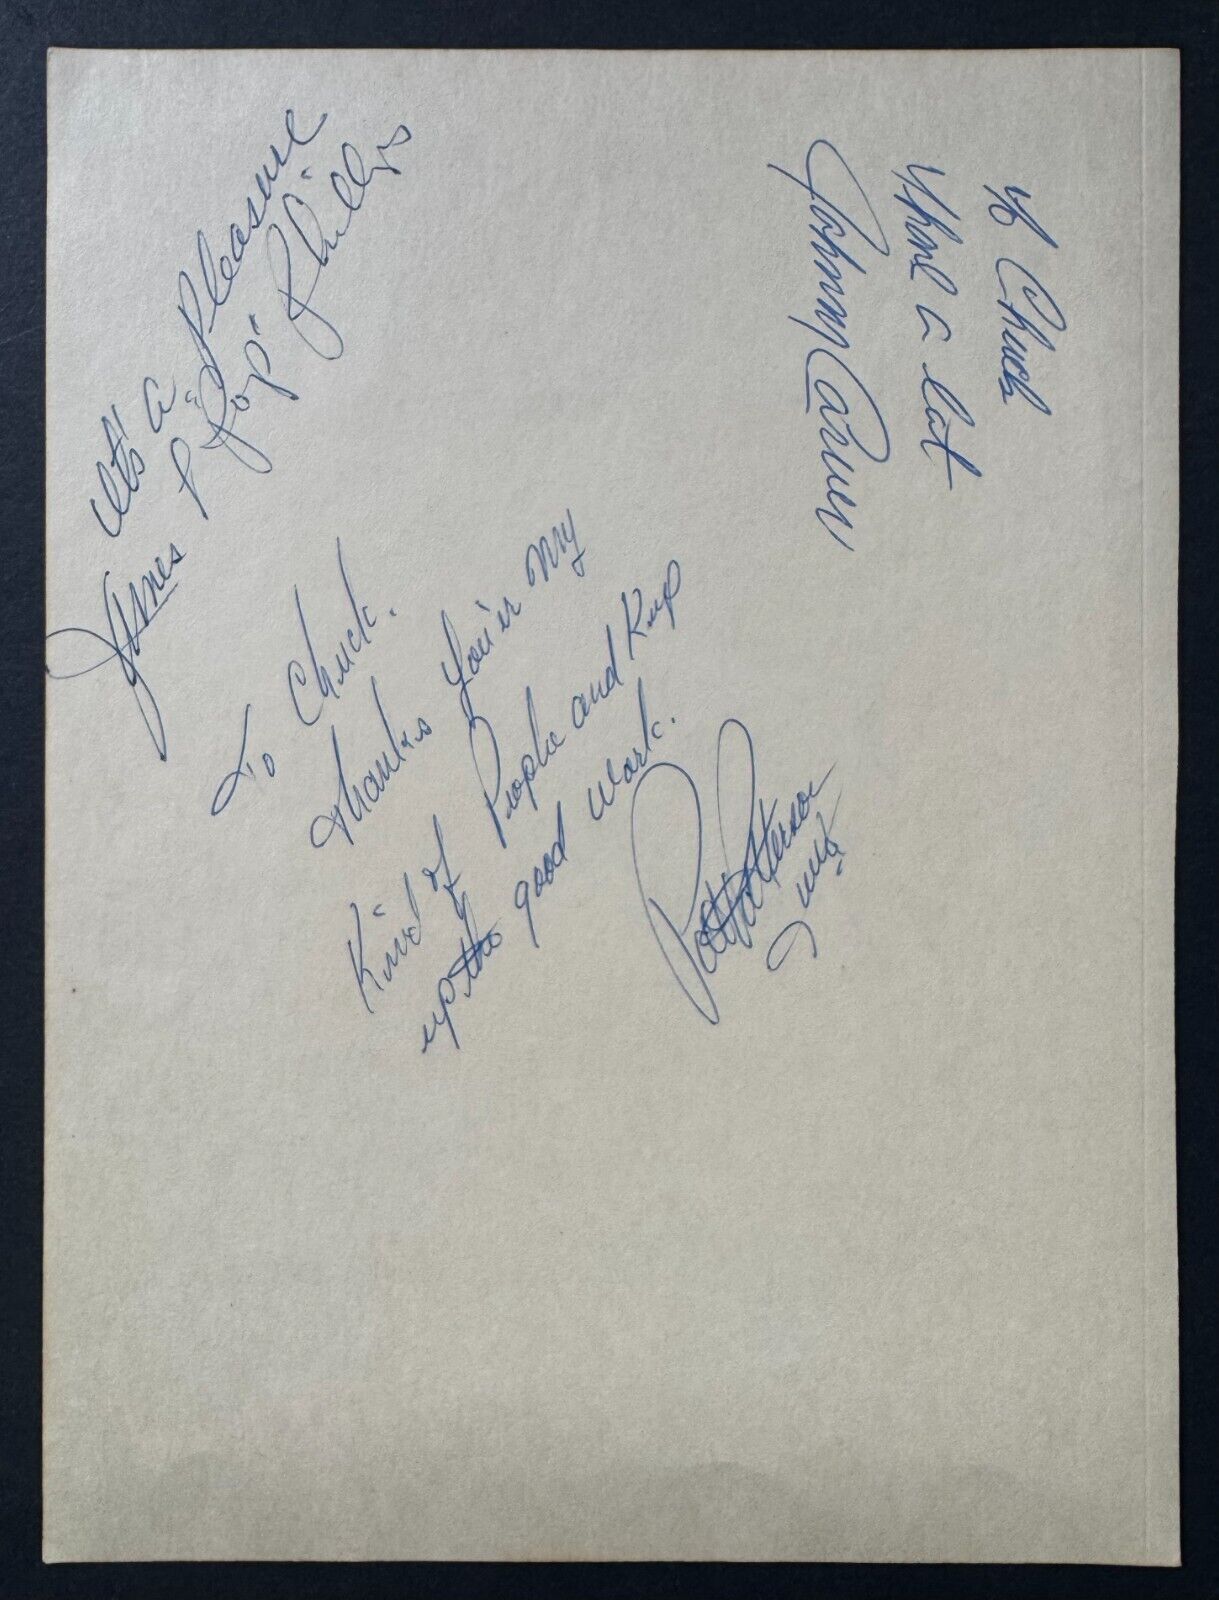 It's a Pleasure
James P "Pop" Phillips
To Chuck
Thanks a lot
Johnny Carver
To Chuck.
Thanks You'r My
Kind of People and Keep
up the good Work.
Pat Patterson